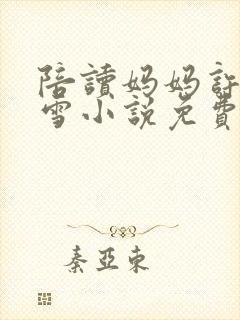 陪讀媽媽許
雪小說免費
秦亞東